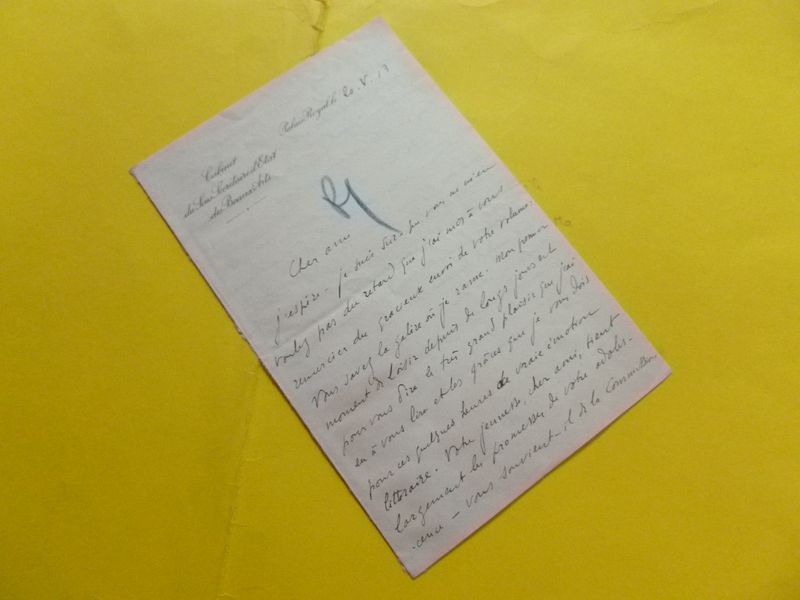 Cabinet
du Sous-Secrétaire d'État
des Beaux-Arts
Palais Royal, le 20. V. 13
Cher ami
j'espère - je suis sûr que vous ne m'en
voulez pas du retard que j'ai mis à vous
remercier du gracieux envoi de votre volume.
Vous savez la galère où je rame. Mon premier
moment de loisir depuis de longs jours est
pour vous dire le très grand plaisir que j'ai
eu à vous lire et les grâces que je vous dois
pour ces quelques heures de vraie émotion
littéraire. Votre jeunesse, cher ami, tient
largement les promesses de votre adoles-
cence - vous souvient-il de la Commission,